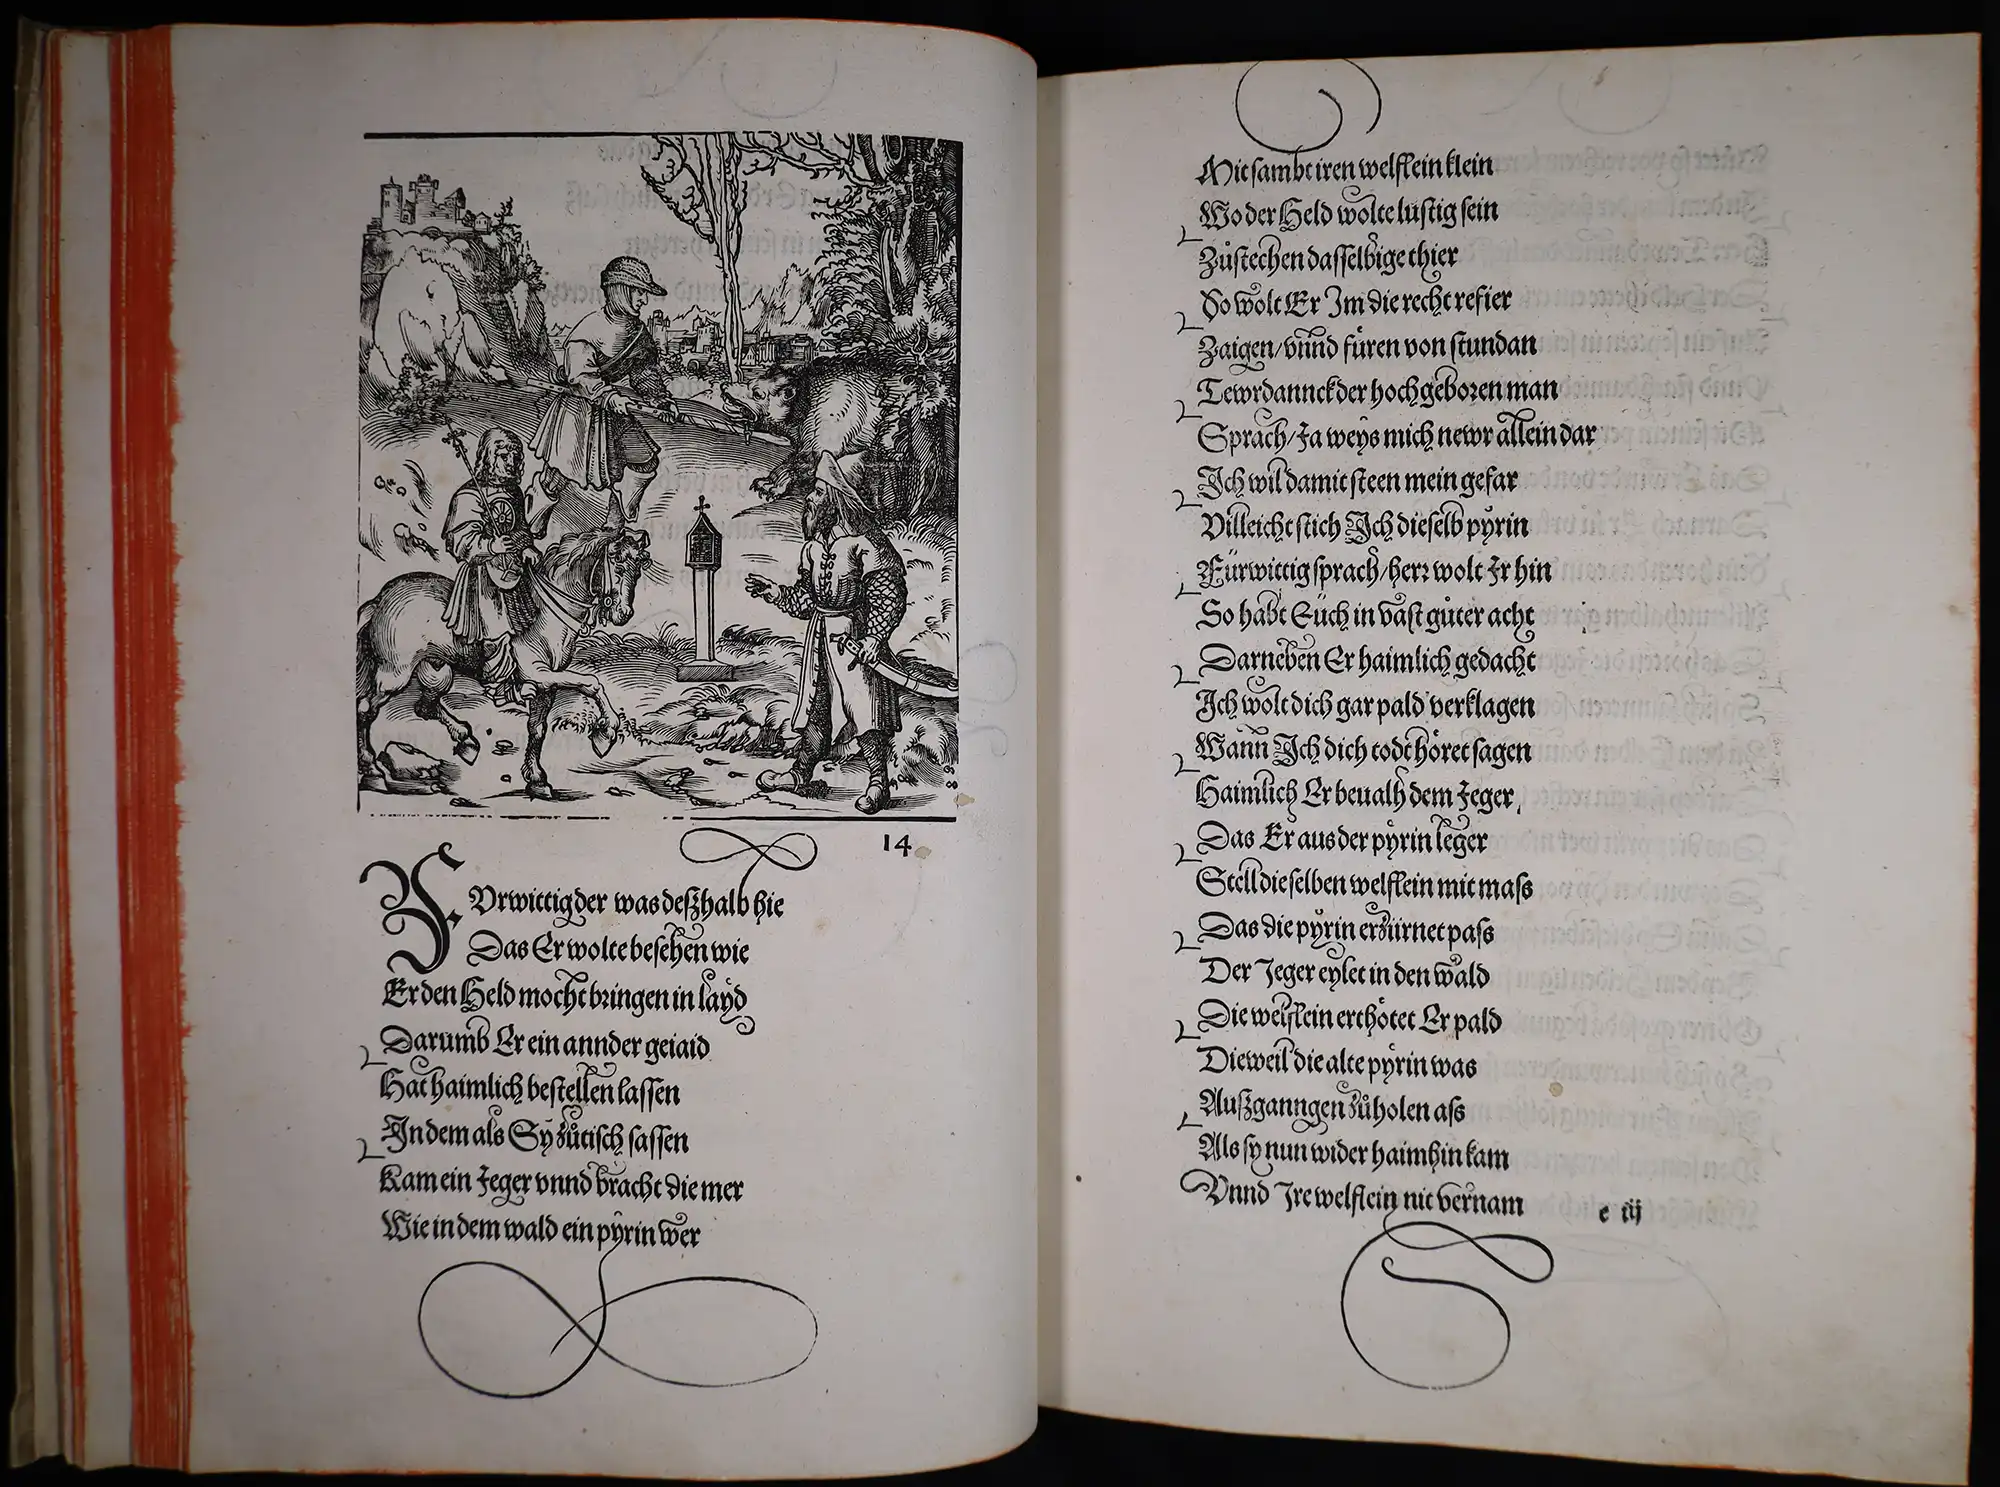 14
FUrwittig der was deßhalb hie
Das Er wolte besehen wie
Er den Held mocht bringen in layd
Darumb Er ein annder geiaid
Hat haimlich bestellen lassen
In dem als Sy zůtisch sassen
Kam ein Jeger vnnd bracht die mer
Wie in dem wald ein pyrin wer
Mit sambt iren welfflein klein
Wo der Held wolte lustig sein
Zůstechen dasselbige thier
So wolt Er Im die recht refier
Zaigen/vnnd füren von stundan
Tewrdannck der hochgeboren man
Sprach/Ja weys mich newr allein dar
Ich wil damit steen mein gefar
Villeicht stich Ich dieselb pyrin
Fürwittig sprach/herr wolt Ir hin
So habt Eüch in vast gůter acht
Darneben Er haimlich gedacht
Ich wolt dich gar pald verklagen
Wann Ich dich todt höret sagen
Haimlich Er beualh dem Jeger
Das Er aus der pyrin leger
Stell dieselben welfflein mit mass
Das die pyrin erzürnet pass
Der Jeger eylet in den wald
Die welfflein erthötet Er pald
Dieweil die alte pyrin was
Außganngen zůholen ass
Als sy nun wider haimhin kam
Vnnd Ire welfflein nit vernam
e iij